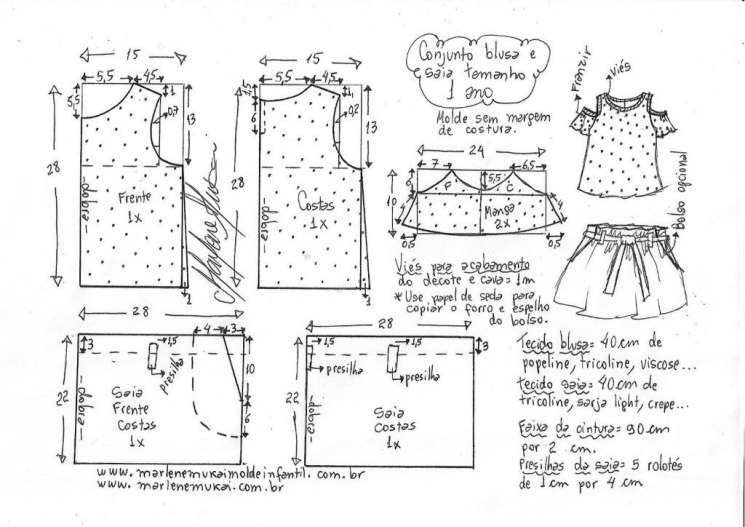 15
5,5
4,5
5,5
1
0,7
13
28
dobra
Frente
1x
1
15
5,5
4,5
1,5
6
1
0,2
13
28
dobra
Costas
1x
1
Conjunto blusa e
saia tamanho
1 ano
Molde sem margem
de costura.
24
7
6,5
6
5,5
F
C
10
4
4
Manga
2x
0,5
0,5
Franzir
Viés
Bolso opcional
Viés para acabamento
do decote e cava= 1m
* Use papel de seda para
copiar o forro e espelho
do bolso.
28
4
3
3
1,5
presilha
10
6
22
dobra
Saia
Frente
Costas
1x
28
1,5
3
presilha
presilha
22
dobra
Saia
Costas
1x
Tecido blusa= 40 cm de
popeline, tricoline, viscose...
tecido saia= 40 cm de
tricoline, sarja light, crepe...
Faixa da cintura= 90 cm
por 2 cm.
Presilhas da saia= 5 rolotés
de 1 cm por 4 cm
www.marlenemukaimoldeinfantil.com.br
www.marlenemukai.com.br